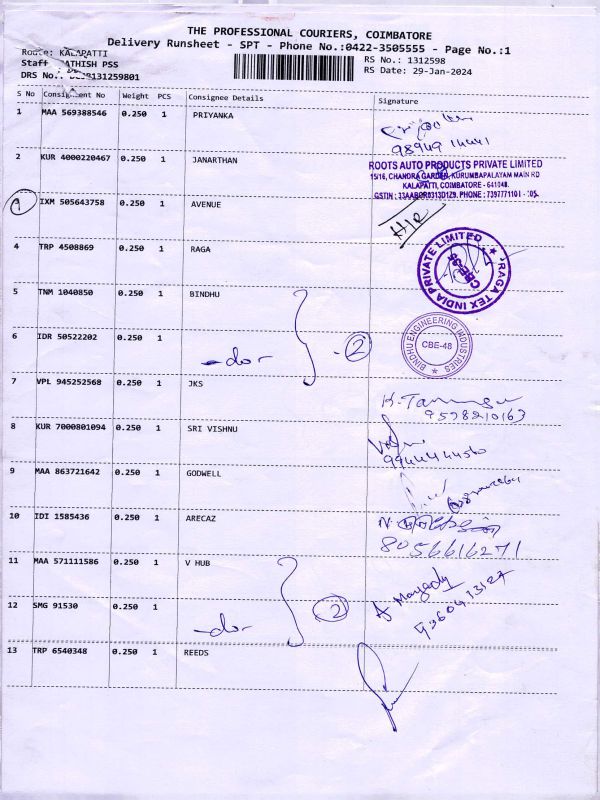 THE PROFESSIONAL COURIERS, COIMBATORE
Delivery Runsheet - SPT - Phone No.:0422-3505555 - Page No.:1
Route: KALAPATTI
Staff SATHISH PSS
RS No.: 1312598
DRS No.: 131259801
RS Date: 29-Jan-2024
S No Consignment No Weight PCS Consignee Details Signature
1 MAA 569388546 0.250 1 PRIYANKA
98949 14441
2 KUR 4000220467 0.250 1 JANARTHAN
ROOTS AUTO PRODUCTS PRIVATE LIMITED
15/16, CHANDRA GARDEN, KURUMBAPALAYAM MAIN RD
KALAPATTI, COIMBATORE - 641048.
GSTIN : PHONE : 7397771101 - 105.
IXM 505643758 0.250 1 AVENUE
H/R
4 TRP 4508869 0.250 1 RAGA
RAGA TEX INDIA PRIVATE LIMITED
5 TNM 1040850 0.250 1 BINDHU
6 IDR 50522202 0.250 1
-do- 2
BINDHU ENGINEERING INDUSTRIES
CBE-48
7 VPL 945252568 0.250 1 JKS
9528210163
8 KUR 7000801094 0.250 1 SRI VISHNU
9944444450
9 MAA 863721642 0.250 1 GODWELL
10 IDI 1585436 0.250 1 ARECAZ
8056616271
11 MAA 571111586 0.250 1 V HUB
12 SMG 91530 0.250 1
-do- 2
9360413127
13 TRP 6540348 0.250 1 REEDS